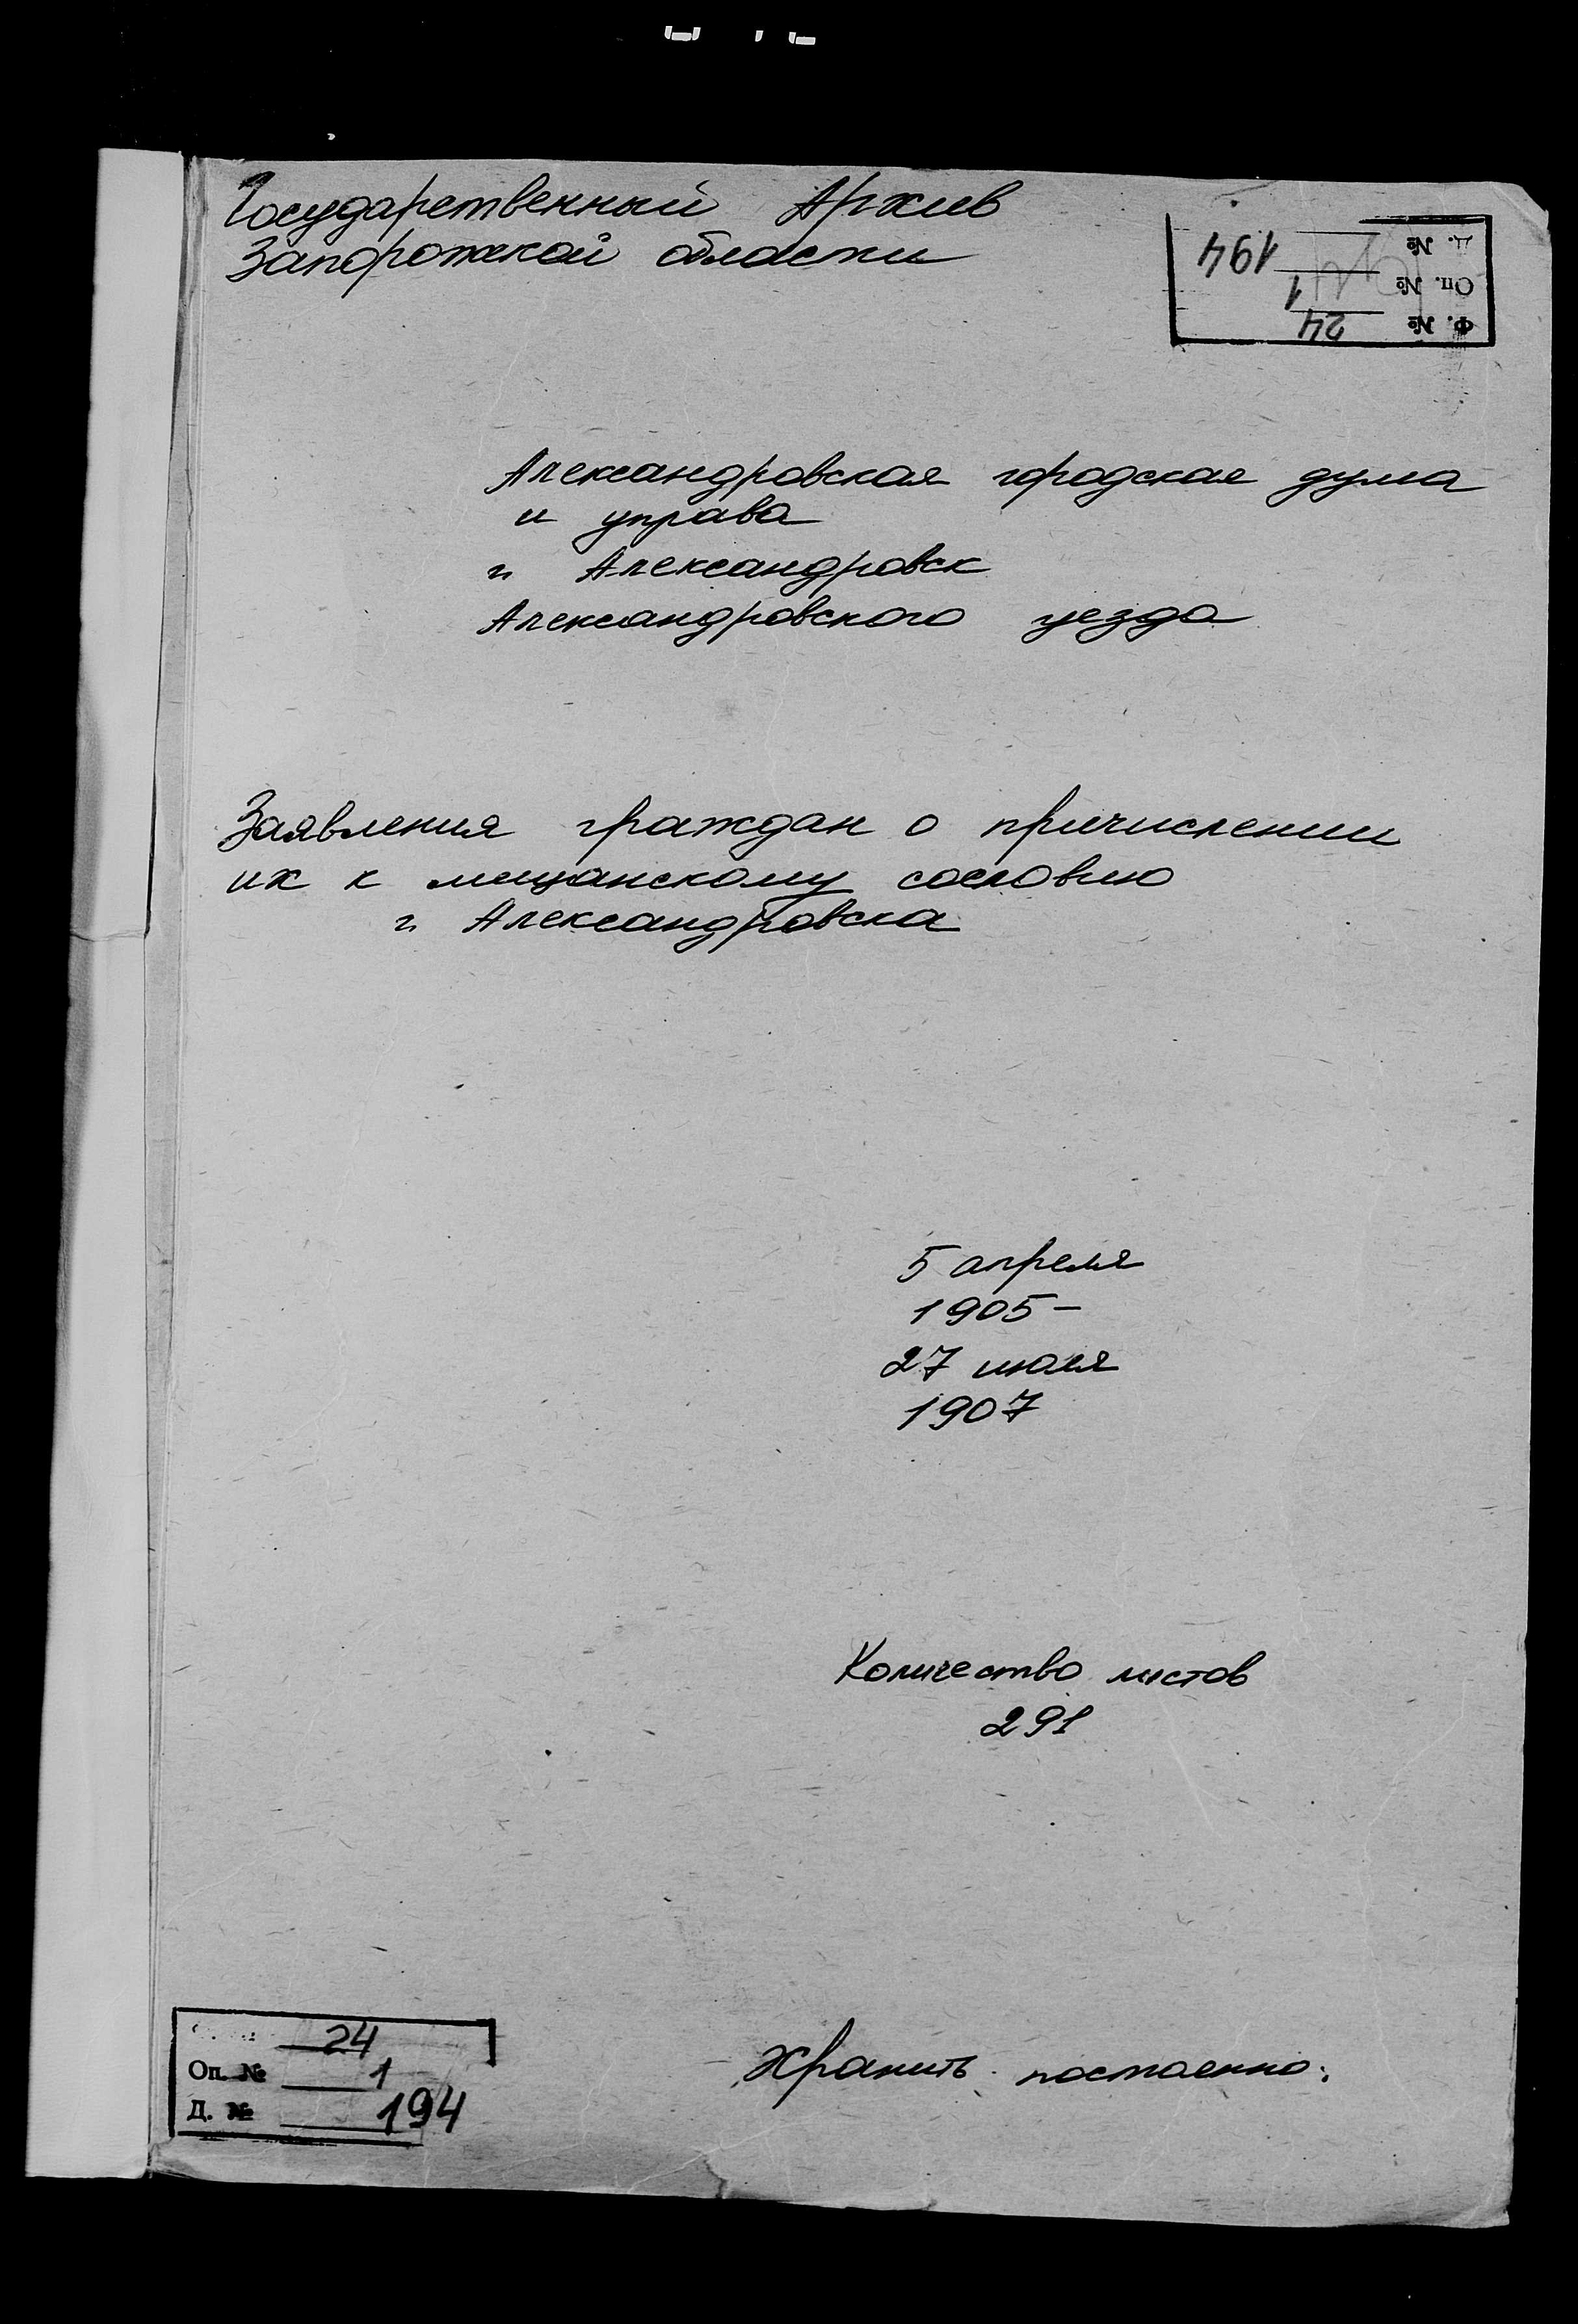 Государственный Архив
Запорожской области
Ф. № 24
Оп. № 1
Д. № 194
Александровская городская дума
и управа
г. Александровск
Александровского уезда
Заявления граждан о причислении
их к мещанскому сословию
г. Александровска
5 апреля
1905 –
27 июля
1907
Количество листов
291
24
Оп. № 1
Д. № 194
Хранить постоянно.